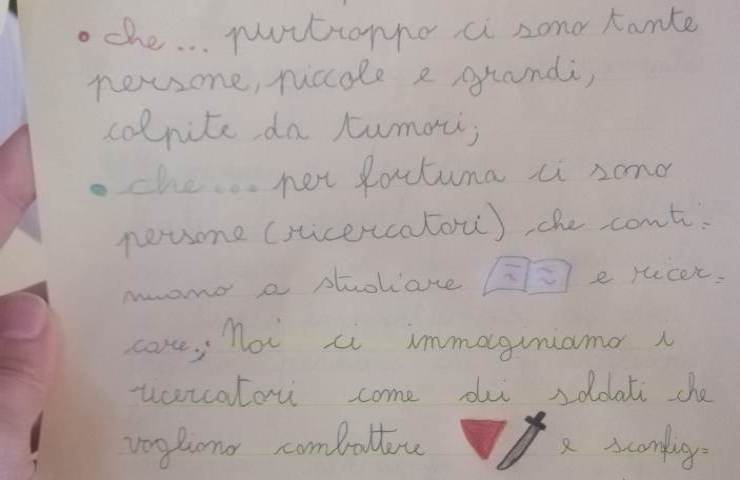 • che... purtroppo ci sono tante
persone, piccole e grandi,
colpite da tumori;
• che... per fortuna ci sono
persone (ricercatori) che conti=
nuano a studiare e ricer=
care; Noi ci immaginiamo i
ricercatori come dei soldati che
vogliono combattere e sconfig=